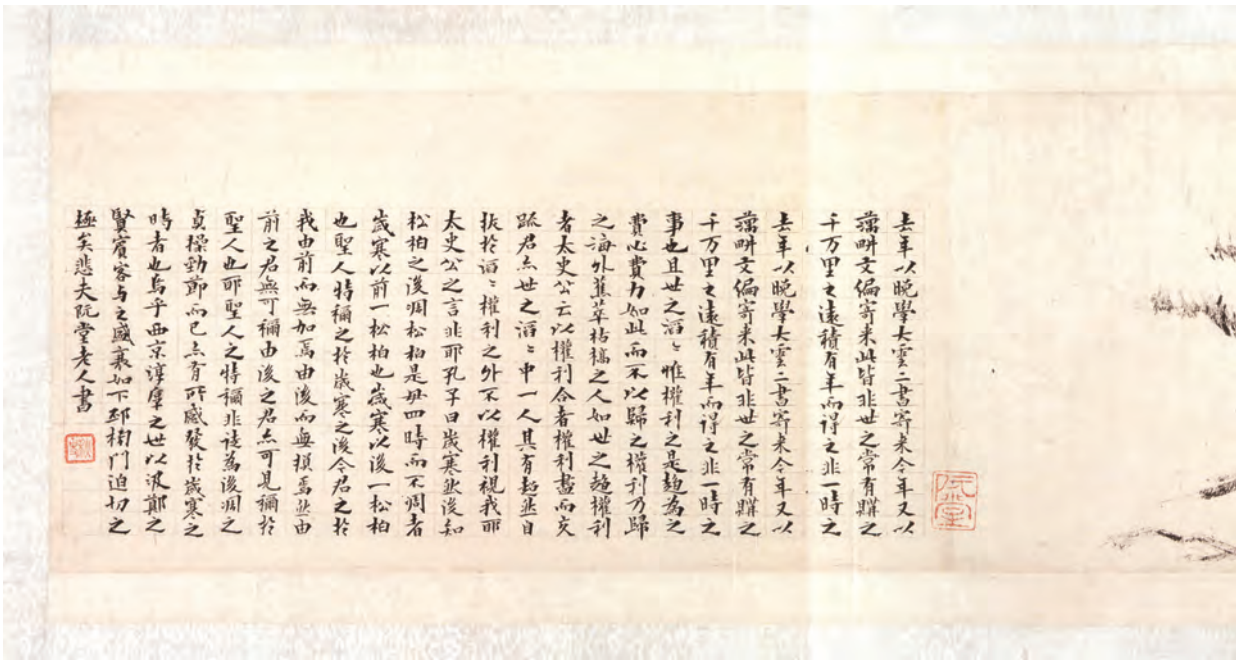 阮堂
去年以晩學大雲二書寄来今年又以
藕畊文偏寄来此皆非世之常有購之
千万里之遠積有年而得之非一時之
去年以晩學大雲二書寄来今年又以
藕畊文偏寄来此皆非世之常有購之
千万里之遠積有年而得之非一時之
事也且世之滔〻惟權利之是趨為之
費心費力如此而不以歸之權利乃歸
之海外蕉萃枯槁之人如世之趨權利
者太史公云以權利合者權利盡而交
疏君亦世之滔〻中一人其有超然自
拔於滔〻權利之外不以權利視我耶
太史公之言非耶孔子曰歲寒然後知
松柏之後凋松柏是毋四時而不凋者
歲寒以前一松柏也歲寒以後一松柏
也聖人特稱之於歲寒之後今君之於
我由前而無加焉由後而無損焉然由
前之君無可稱由後之君亦可見稱於
聖人也耶聖人之特稱非徒為後凋之
貞操勁節而已亦有所感發於歲寒之
時者也烏乎西京淳厚之世以汲鄭之
賢賓客与之盛衰如下邳榜門迫切之
極矣悲夫阮堂老人書